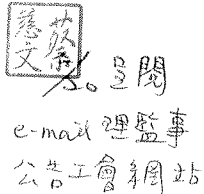 蔡
慈文
呈閱
e-mail 理監事
公告工會網站